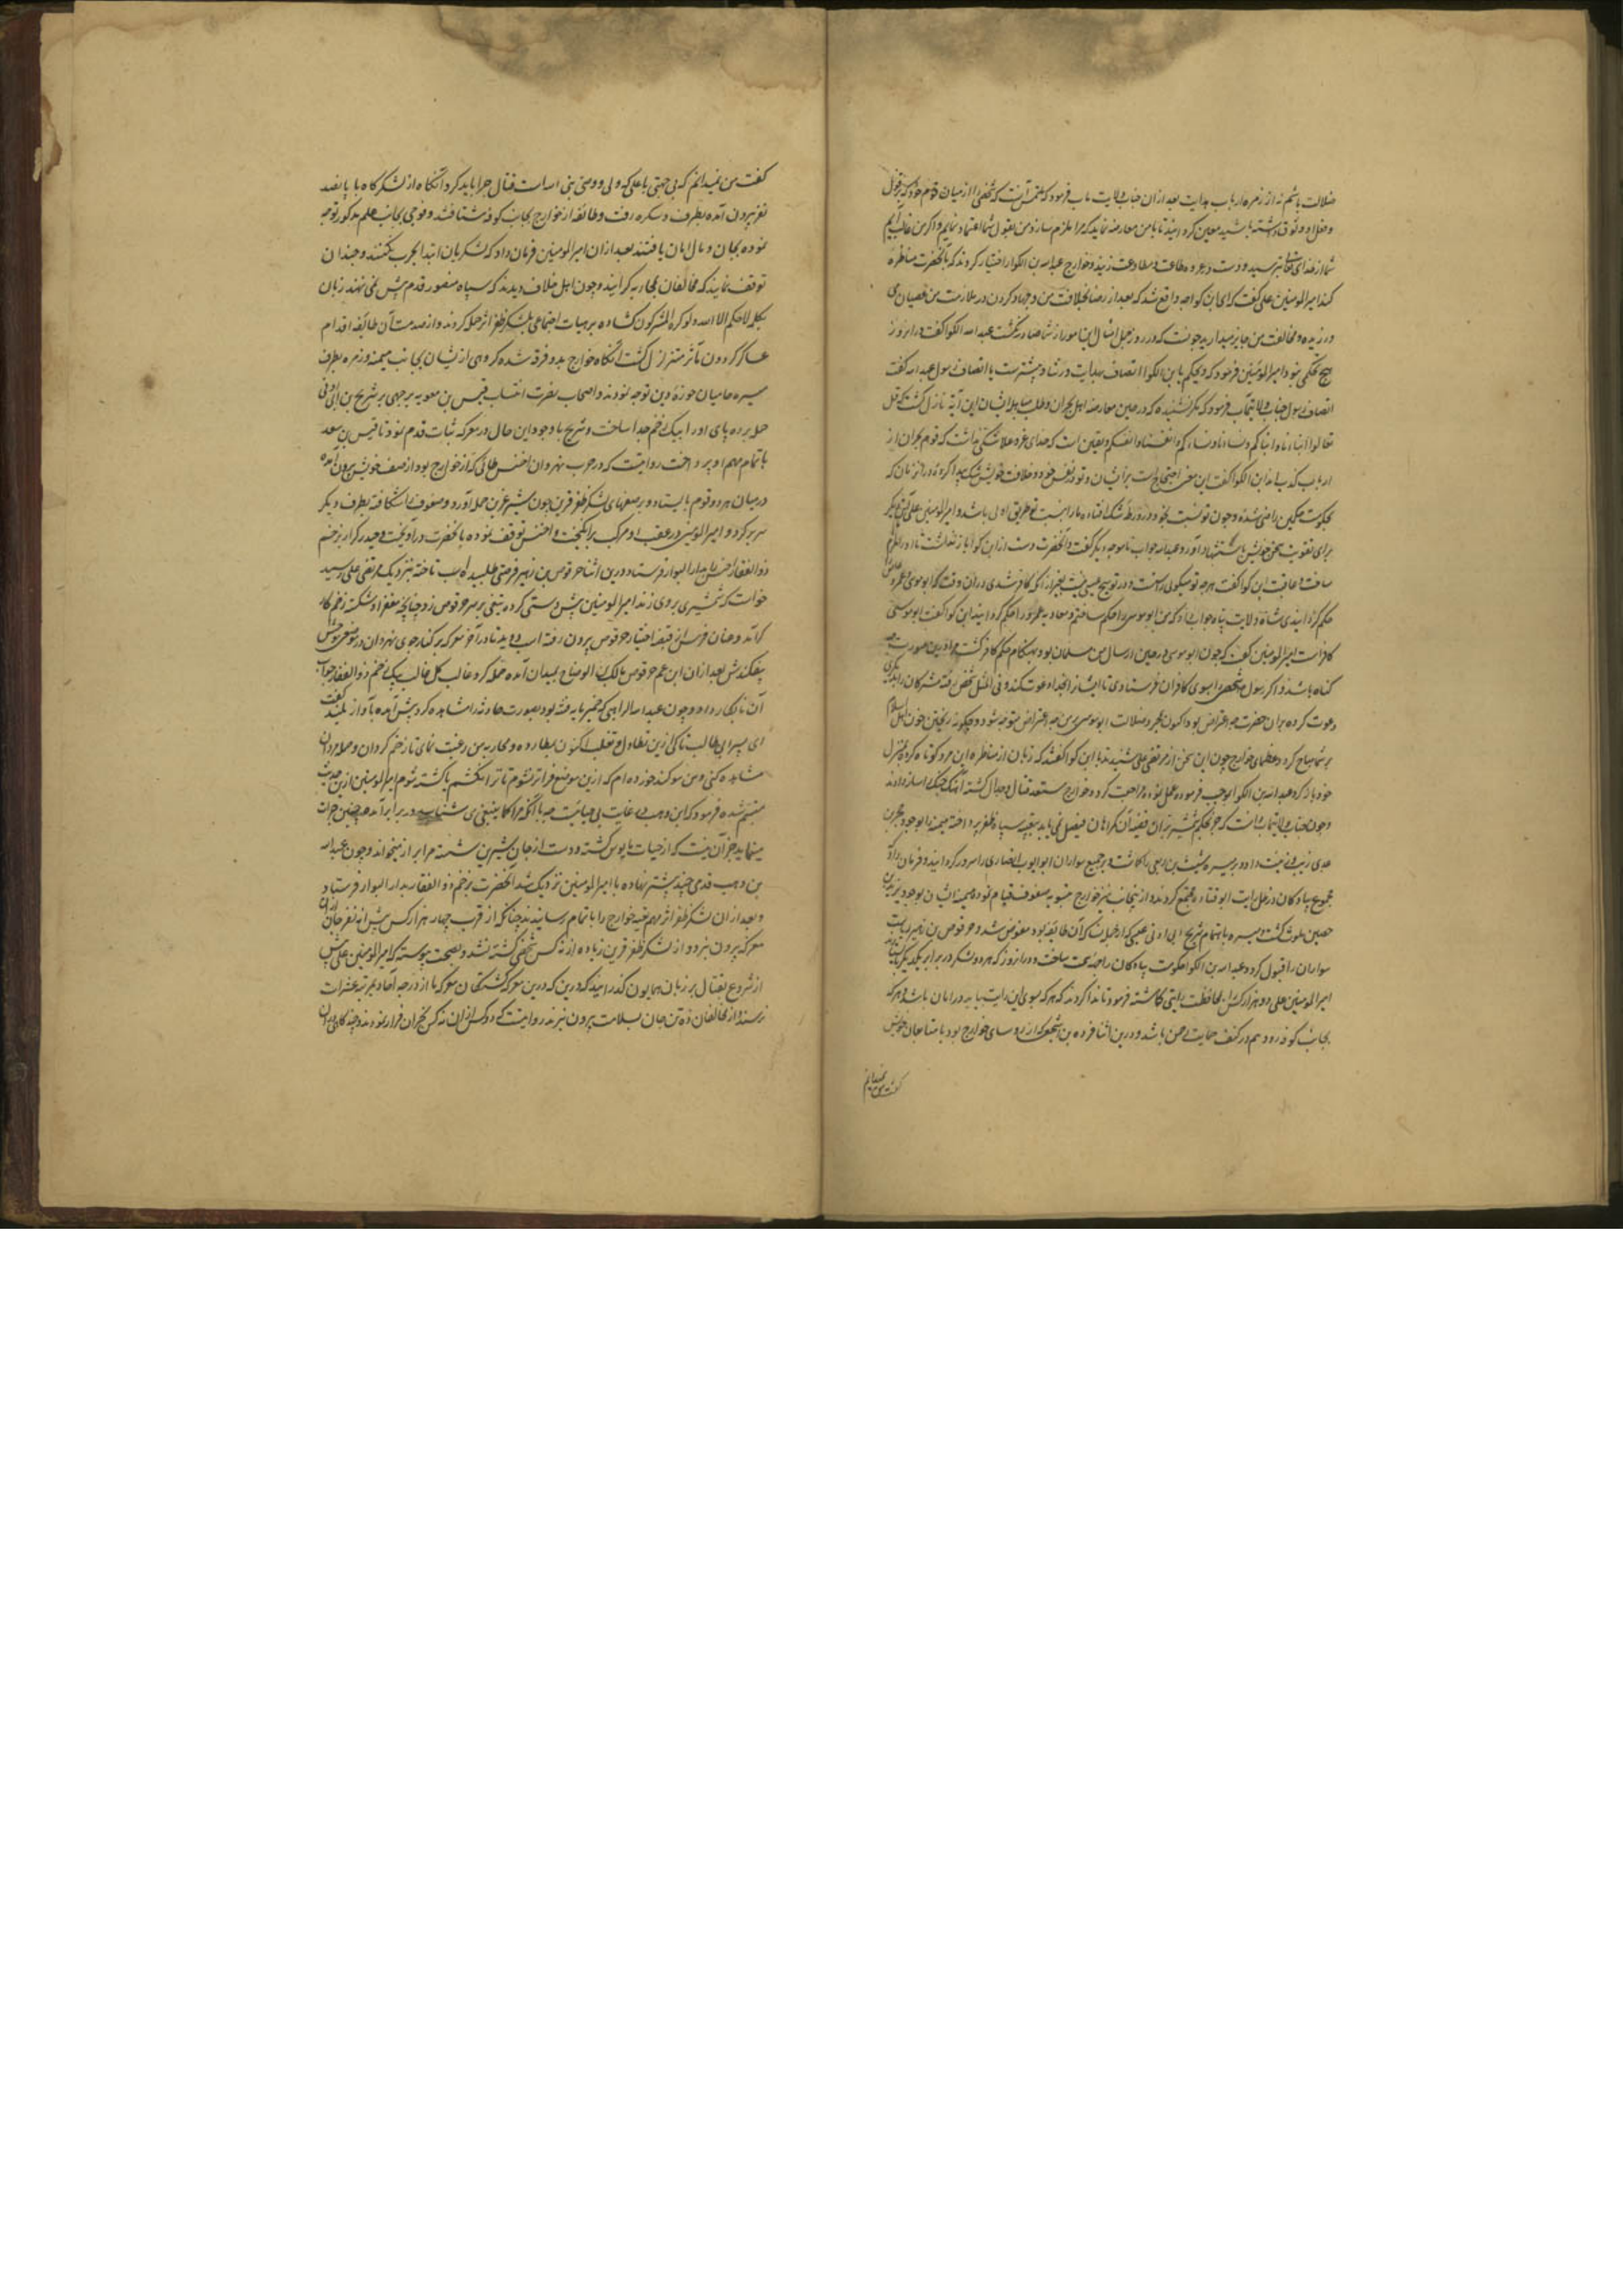 ضلالت باشم نه از زمره ارباب هدایت بعد ازان جناب ولایت ماب فرمود که ملتمس آنست که شخصی را از میان قوم خود که بر قول
و فعل او وثوق داشته باشید معین گردانید تا با من معارضه نماید که مرا ملزم سازد من بقول شما اعتماد نمایم و اگر من غالب آیم
شما از خدای تعالی بترسید و دست در عروه طاعت و مطاوعت زنید و خوارج عبدالله بن الکوا را اختیار کردند که با آنحضرت مناظره
کند امیرالمومنین علی گفت که ای ابن کوا چه واقع شد که بعد از رضا بخلافت من و جهاد کردن در ملازمت من عصیان می
ورزیده و مخالفت من جایز میدارید چونست که در روز جمل امثال این امور از شما صادر نگشت عبدالله الکوا گفت در انروز
هیچ تحکمی نبود امیرالمومنین فرمود که ویحکم یا بن الکوا اتصاف بهدایت و رشاد بیشترست یا انصاف رسول عبدالله گفت
انصاف رسول جناب ولایتمآب فرمود که مگر نشنیده که در حین معارضه اهل نجران و طلب مباهله ایشان این آیه نازل گشت که قل
تعالوا ابناءنا و ابناءکم و نساءنا و نساءکم و انفسنا و انفسکم و یقین است که خدای عز و علا شکی نداشت که قوم نجران از
ارباب کذب اند ابن الکوا گفت این معنی احتجاج است بر ایشان و تو در نفس خود و خلافت خویش شک پیدا کرده در انزمان که
بحکومت حکمین راضی شده و چون تو نسبت بخود در ورطه شک افتاده ما را نسبت بتو طریق اولی باشد و امیرالمومنین علی آیتی دیگر
برای تقویت سخن خویش باستشهاد آورد و عبدالله جواب ناموجه دیگر گفت و آنحضرت دست از ابن کوا باز نداشت تا او را ملزم
ساخت و عاقبت ابن کوا گفت هرچه تو میگوئی راست و در تو هیچ عیبی نیست بغیر از آنکه کافر شدی در ان وقت که ابوموسی و عمرو عاص
حکم گردانیدی شاه ولایت پناه جواب داد که من ابوموسی را حکم ساختم و معاویه عمرو را حکم گردانید ابن کوا گفت ابوموسی
کافر است امیرالمومنین گفت که چون ابوموسی در حین ارسال من مسلمان بود و بهنگام حکم کافر گشت مرا درین صورت چه
گناه باشد و اگر رسول شخصی را بسوی کافران فرستادی تا ایشانرا بخدا دعوت کند و فی المثل شخص رفته مشرکان را بدیگری
دعوت کرده بران حضرت چه اعتراض بود اکنون بکفر و ضلالت ابوموسی بر من چه اعتراض متوجه شود و چگونه ریختن خون اهل اسلام
بر شما مباح گردد عظمای خوارج چون این سخن از مرتضی علی شنیدند با ابن کوا گفتند که زبان از مناظره این مرد کوتاه کرده بمنزل
خود بازگرد عبدالله بن الکوا بموجب فرموده عمل نموده مراجعت کرد و خوارج مستعد قتال و جدال گشته آهنگ جنگ ساز دادند
و چون جناب ولایتمآب دانست که جز بحکم شمشیر بران قضیه آن گمراهان فیصل نمی یابد بتعبیه سپاه ظفر پرداخته میمنه را بوجود حجر بن
عدی زیب و زینت داد و بر میسره شبث بن ربعی را گماشت و بر جمیع سواران ابوایوب انصاری را سرور گردانید و فرمان داد که
مجموع پیادگان در ظل رایت ابوقتاده مجتمع گردند و از انجانب نیز خوارج بتسویه صفوف قیام نموده میمنه ایشان بوجود یزید بن
حصین ملوث گشت و میسره باهتمام شریح ابی اوفی عبسی که از خیل نساک آن طایفه بود مفوض شد و حرقوص بن زهیر ریاست
سواران را قبول کرد و عبدالله بن الکوا حکومت پیادگان را وجه همت ساخت و دران روز که هر دو لشکر در برابر یکدیگر بایستادند
امیرالمومنین علی دو هزار کس را بمحافظت رایتی گماشته فرمود تا ندا کردند که هر که بسوی این رایت بیاید در امان باشد و هر که
بجانب کوفه رود هم در کنف حمایت من باشد و درین اثنا فروه بن اشجعی که از روسای خوارج بود با متابعان خویش
گفت من نمیدانم
گفت من نمیدانم که بی حجتی با علی که ولی و وصی نبی الله است قتال چرا باید کرد آنگاه از لشکرگاه با پانصد
نفر بیرون آمده بطرف دسکره رفت و طائفه از خوارج بجانب کوفه شتافتند و فوجی بجانب علم مذکور توجه
نموده بجان و مال امان یافتند بعد ازان امیرالمومنین فرمان داد که لشکریان ابتدا بحرب نکنند و چندان
توقف نمایند که مخالفان بمحاربه گرایند و چون اهل خلاف دیدند که سپاه منصور قدم پیش نمی نهند زبان
بکلمه لا حکم الا الله ولو کره المشرکون گشاده بر هیات اجتماعی بلشکر ظفر اثر حمله کردند و از صدمت آن طائفه اقدام
عساکر گردون مآثر متزلزل گشت آنگاه خوارج بدو فرقه شده گروهی از ایشان بجانب میمنه و زمره بطرف
میسره حامیان حوزه دین توجه نمودند و اصحاب نصرت انتساب قیس بن معویه برجمی بر شریح بن ابی اوفی
حمله برده پای او را بیک زخم جدا ساخت و شریح با وجود این حال در معرکه ثبات قدم نمود تا قیس بن سعد
باتمام مهم او پرداخت روایتست که در حرب نهروان اخنس طائی که از خوارج بود از صف خویش بیرون آمده
درمیان هر دو قوم بایستاد و بر صفهای لشکر ظفر قرین چون شیر عرین حمله آورد و صفوف را شکافته بطرف دیگر
سر بر کرد و امیرالمومنین در عقب او مرکب برانگیخت و اخنس توقف نموده با آنحضرت درآویخت و حیدر کرار بزخم
ذوالفقار اخنس را بدار البوار فرستاد درین اثنا حرقوص بن زهیر فرصتی طلبیده اسب تاخته بنزدیک مرتضی علی رسید
خواست که شمشیری بروی زند امیرالمومنین پیش دستی کرده تیغی بر سر حرقوص زد چنانچه مغفر او شکسته زخم کار
گر آمد و عنان فرس از قبضه اختیار حرقوص بیرون رفته اسب دوید تا در آخر معرکه بر کنار جوی نهروان در موضعی موحش
بیفکندش بعد ازان ابن عم حرقوص مالک بن الوضاح بمیدان آمده حمله کرد غالب کل غالب بیک زخم ذوالفقار جواب
آن نابکار داد و چون عبدالله الراسبی که خمیر مایه فتنه بود بصورت حادثه را مشاهده کرد پیش آمده بآواز بلند گفت
ای پسر ابی طالب تا کی ازین تطاول و تغلب اکنون بمطارده و محاربه من رغبت نمای تا زخم گردان و حمله مردان
مشاهده کنی و من سوگند خورده ام که ازین موضع فراتر نشوم تا ترا نکشم یا کشته شوم امیرالمومنین ازین حدیث
متبسم شده فرمود که ابن وهب در غایت بی حیائیست چه با آنکه مرا کما ینبغی می شناسد در برابر آمده چنین جرات
مینماید جز آن نیست که از حیات مایوس گشته و دست از جان شیرین شسته مرا براز میخواند و چون عبدالله
بن وهب قدمی چند پیشتر نهاده با امیرالمومنین نزدیک شد آنحضرت بزخم ذوالفقار بدار البوار فرستاد
و بعد ازان لشکر ظفر اثر مهم بقیه خوارج را باتمام رسانیدند چنانکه از قرب چهار هزار کس بیش از نه نفر جان از ان
معرکه بیرون نبرد و از لشکر ظفر قرین زیاده از نه کس شخصی کشته نشد و بصحت پیوسته که امیرالمومنین علی پیش
از شروع بقتال بر زبان همایون گذرانید که درین معرکه کشتگان معرکه ما از درجه آحاد بمرتبه عشرات
نرسند و از مخالفان ده تن جان بسلامت بیرون نبرند روایتست که دو کس ازان نه کس بخراسان فرار نمودند و چند گاهی دران